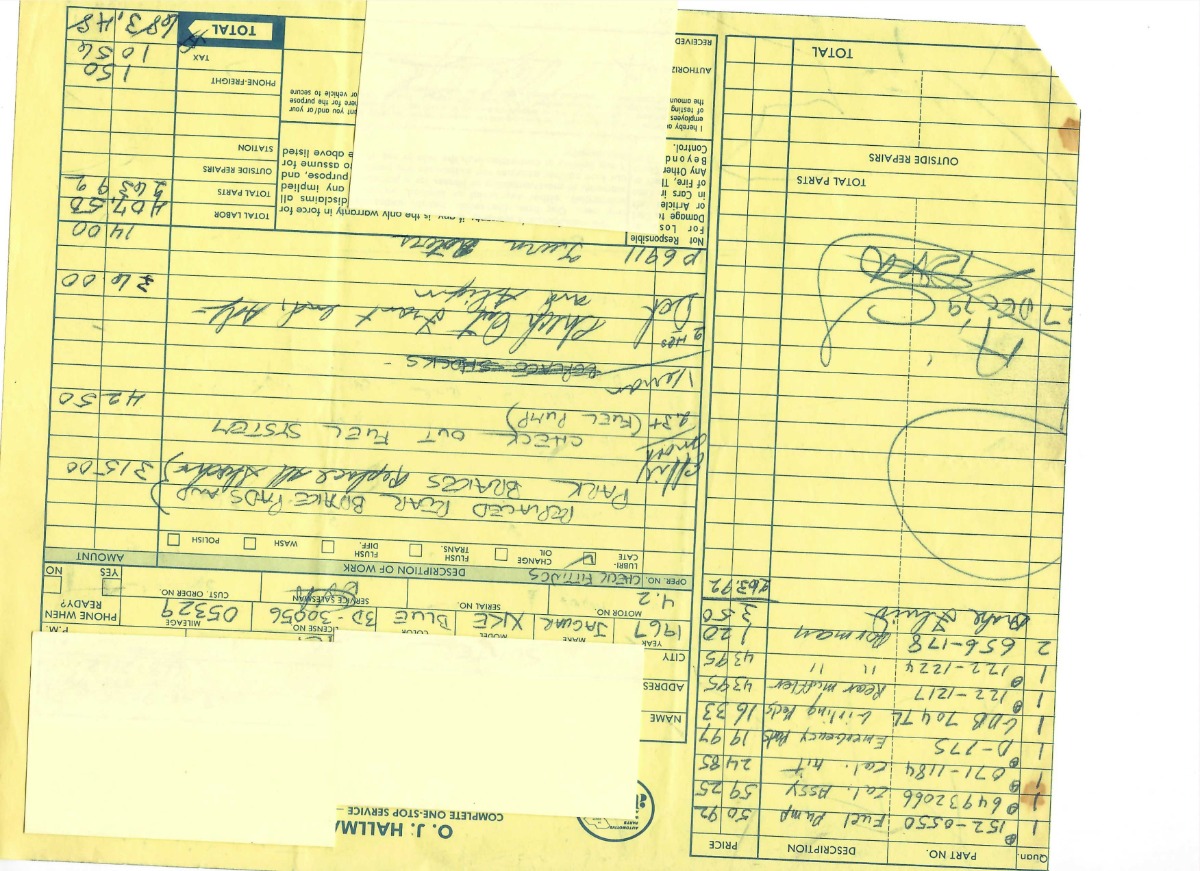 Quan. PART NO. DESCRIPTION PRICE
1 152-0550 Fuel Pump 50 92
1 64932066 Cal. ASSY 59 25
1 071-1184 Cal. Kit 24 85
1 D-775 Emergency Pads 19 97
1 GDB 704TL Lining Pads 16 33
1 122-1217 Rear muffler 43 95
1 122-1224 " " 43 95
2 656-178 Dorman 1 20
Brake Fluid 3 50
263.92
27 DEC 79
TOTAL PARTS
OUTSIDE REPAIRS
TOTAL
O. J. HALLMA
COMPLETE ONE-STOP SERVICE
AUTOMOTIVE PARTS
NAME
ADDRES
CITY
P.M.
YEAR MAKE MODEL COLOR LICENSE NO. MILEAGE PHONE WHEN READY?
1967 JAGUAR XKE BLUE 3D-30056 05329
MOTOR NO. SERIAL NO. SERVICE SALESMAN CUST. ORDER NO. YES NO
4.2
OPER. NO. CHECK FITTINGS DESCRIPTION OF WORK AMOUNT
LUBRI-CATE CHANGE OIL FLUSH TRANS. FLUSH DIFF. WASH POLISH
REPLACED REAR BRAKE PADS AND
PARK BRAKES Replace all 315 00
CHECK OUT FUEL SYSTEM
2.3+ (FUEL PUMP) 42 50
Vernon REPLACED SHOCKS
2 HRS
Del Check Out Front end, Adj-
and Align 36.00
P6911 Turn Rotors 14 00
Not Responsible
For Los
Damage to
or Article
in Cars i
of Fire, T
Any Other
Beyond
Control.
I hereby a
employees
of testing
the amoun
AUTHORIZ
RECEIVED
any is the only warranty in force for
disclaims all
any implied
purpose, and
to assume for
e above listed
ant you and/or your
here for the purpose
or vehicle to secure
TOTAL LABOR 407.50
TOTAL PARTS 263 92
OUTSIDE REPAIRS
STATION
PHONE-FREIGHT 1 50
TAX 10 56
TOTAL 683,48